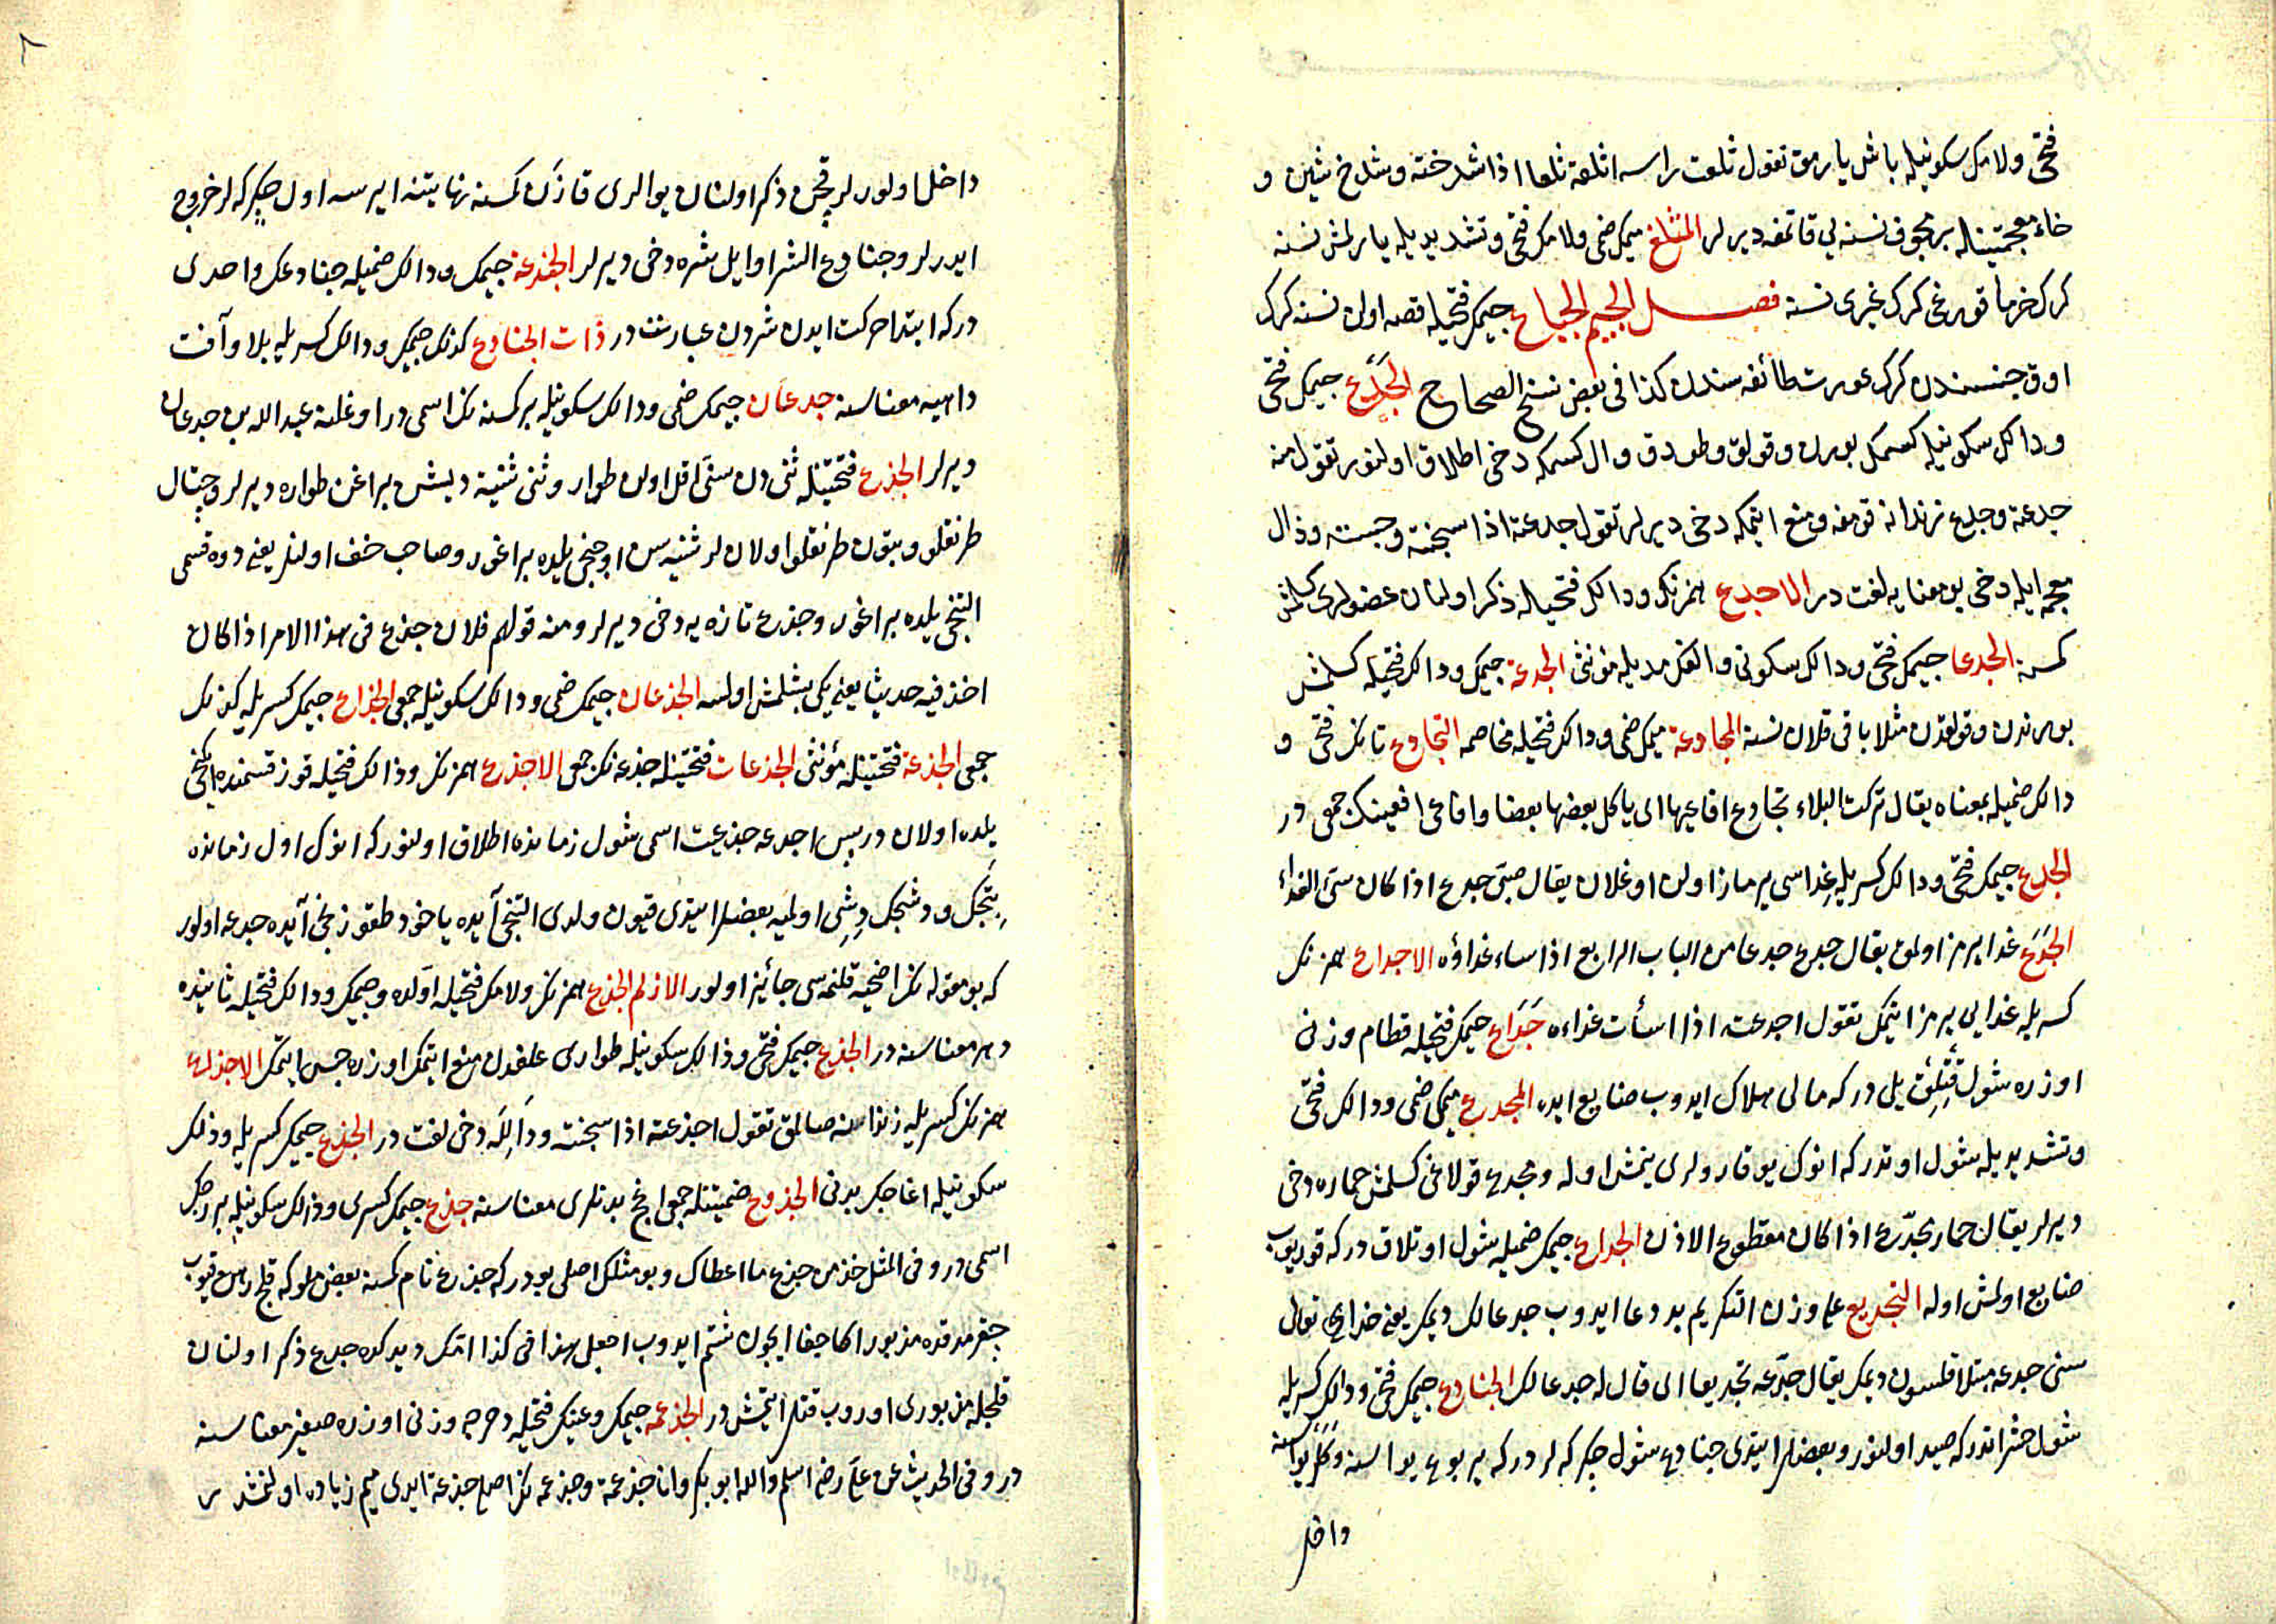 فتحى ولامك سكونيله باش يارمق تقول ثلغت راسه اثلغه ثلغا اذا شدخته وشدخ شين و
خاء معجمتينله بر مجوف نسنه يى قاتمغه ديرلر المثلغ ميمك ضمى ولامك فتحى وتشديديله يارلمش نسنه
كرك خرما قوروغى كرك غيرى نسنه فصل الجيم الجباع جيمك فتحيله قصه اولن نسنه كرك
اوق جنسندن كرك عورت طائفه سندن كذا فى بعض نسخ الصحاح الجدع جيمك فتحى
ودالك سكونيله كسمك بورن وقولق وطوداق وال كسمكه دخى اطلاق اولنور تقول منه
جدعته وجدع زندانه قومغه ومنع ايتمكه دخى ديرلر تقول جدعته اذا سجنته وحبسته وذال
معجمه ايله دخى بو معنايه لغت در الاجدع همزه نك ودالك فتحيله ذكر اولنان عضولرى كسلمش
كمسه الجدعا جيمك فتحى ودالك سكونى والفك مديله مؤنثى الجدعة جيمك ودالك فتحيله كسلمش
بورندن وقولقدن مثلا باقى قلان نسنه المجادعة ميمك ضمى ودالك فتحيله مخاصمه التجادع تانك فتحى و
دالك ضميله بمعناه يقال تركت البلاء تجادع افاعيها اى ياكل بعضها بعضا وافاعى افعينك جمعى در
الجدع جيمك فتحى ودالك كسريله غداسى يرماز اولن اوغلان يقال صبى جدع اذا كان سىء الغداء
الجدع غدا يرمز اولمق يقال جدع جدعا من الباب الرابع اذا ساء غداؤه الاجداع همزه نك
كسريله غدايى يرمز ايتمك تقول اجدعته اذا اسأت غداءه جداع جيمك فتحيله قطام وزنى
اوزره شول قتلق ييلى در كه مالى هلاك ايدوب ضايع ايده المجدع ميمك ضمى ودالك فتحى
وتشديديله شول اوتدر كه انوك يوقارولرى ينمش اوله ومجدع قولاغى كسلمش حماره دخى
ديرلر يقال حمار مجدع اذا كان مقطوع الاذن الجداع جيمك ضميله شول اوتلاق در كه قوريوب
ضايع اولمش اوله التجديع على وزن التكريم بد دعا ايدوب جدعا لك ديمك يعنى خداى تعالى
سنى جدعه مبتلا قلسون ديمك يقال جدعه تجديعا اى قال له جدعا لك الجنادع جيمك فتحى ودالك كسريله
شول حشراتدر كه صيد اولنور وبعضلر ايتدى جنادع شول جكركه لر در كه يربوع يواسنه وكلر يواسنه
داخل
داخل اولورلر قچن ذكر اولنان يوالرى قازن كمسنه نهايتنه ايرسه اول چكركه لر خروج
ايدرلر وجنادع الشر اوايل شره دخى ديرلر الجندعة جيمك ودالك ضميله جنادعك واحدى
در كه ابتدا حركت ايدن شردن عبارت در ذات الجنادع كذلك جيمك ودالك كسريله بلا وآفت
داهيه معناسنه جدعان جيمك ضمى ودالك سكونيله بر كمسنه نك اسمى در اوغلنه عبد الله بن جدعان
ديرلر الجذع فتحتينله ثنى دن سنى اقل اولن طوار وثنى ثنية ديشن براغن طواره ديرلر وجتال
طرنقلو وبتون طرنقلو اولانلر ثنيه سن اوچنجى ييلده براغور وصاحب خف اولنلر يعنى دوه قسمى
التنجى ييلده براغور وجذع تازه يه دخى ديرلر ومنه قولهم فلان جذع فى هذا الامر اذا كان
اخذ فيه حديثا يعنى يكى بشلمش اولسه الجذعان جيمك ضمى ودالك سكونيله جمعى الجذاع جيمك كسريله كذلك
جمعى الجذعة فتحتينله مؤنثى الجذعات فتحتينله جذعه نك جمعى الاجذع همزه نك وذالك فتحيله قوز قسمنده ايكنجى
ييلده اولان در پس اجدعه جذيعت اسمى شول زمانده اطلاق اولنور كه انوك اول زمانده
بتجك ودشجك ديشى اولميه بعضلر ايتدى قيون ولدى التنجى آيده ياخود طقوزنجى آيده جدعه اولور
كه بو مقوله نك اضحيه قلنمه سى جائز اولور الازلم الجذع همزه نك ولامك فتحيله اولده وجيمك ودالك فتحيله ثانيده
دهر معناسنه در الجذع جيمك فتحى وذالك سكونيله طوارى علفدن منع ايتمك اوزره حبس ايتمك الاجذاع
همزه نك كسريله زنداننه صالمق تقول اجذعته اذا سجنته ودالله دخى لغت در الجذع جيمك كسريله وذلك
سكونيله اغاجك بدنى الجذوع ضميتنله جمعى اغج بدنلرى معناسنه جذع جيمك كسرى وذالك سكونيله بر رجلك
اسمى در وفى المثل خذ من جذع ما اعطاك وبو مثلك اصلى بودر كه جذع نام كمسنه بعض ملوكه قلج رهن قيوب
جقرمدقده مذبور اكا جفا ايچون شتم ايدوب اجعل هذا فى كذا امّك ديدكده جدع ذكر اولنان
قلجله مذبورى اوروب قتل ايتمش در الجذعمه جيمك وعينك فتحيله دحرجه وزنى اوزره صغير معناسنه
در وفى الحديث عن على رض اسلم والله ابو بكر وانا جذعمة وجذعمه نك اصلى جذعة ايدى ميم زياده اولنمشدر